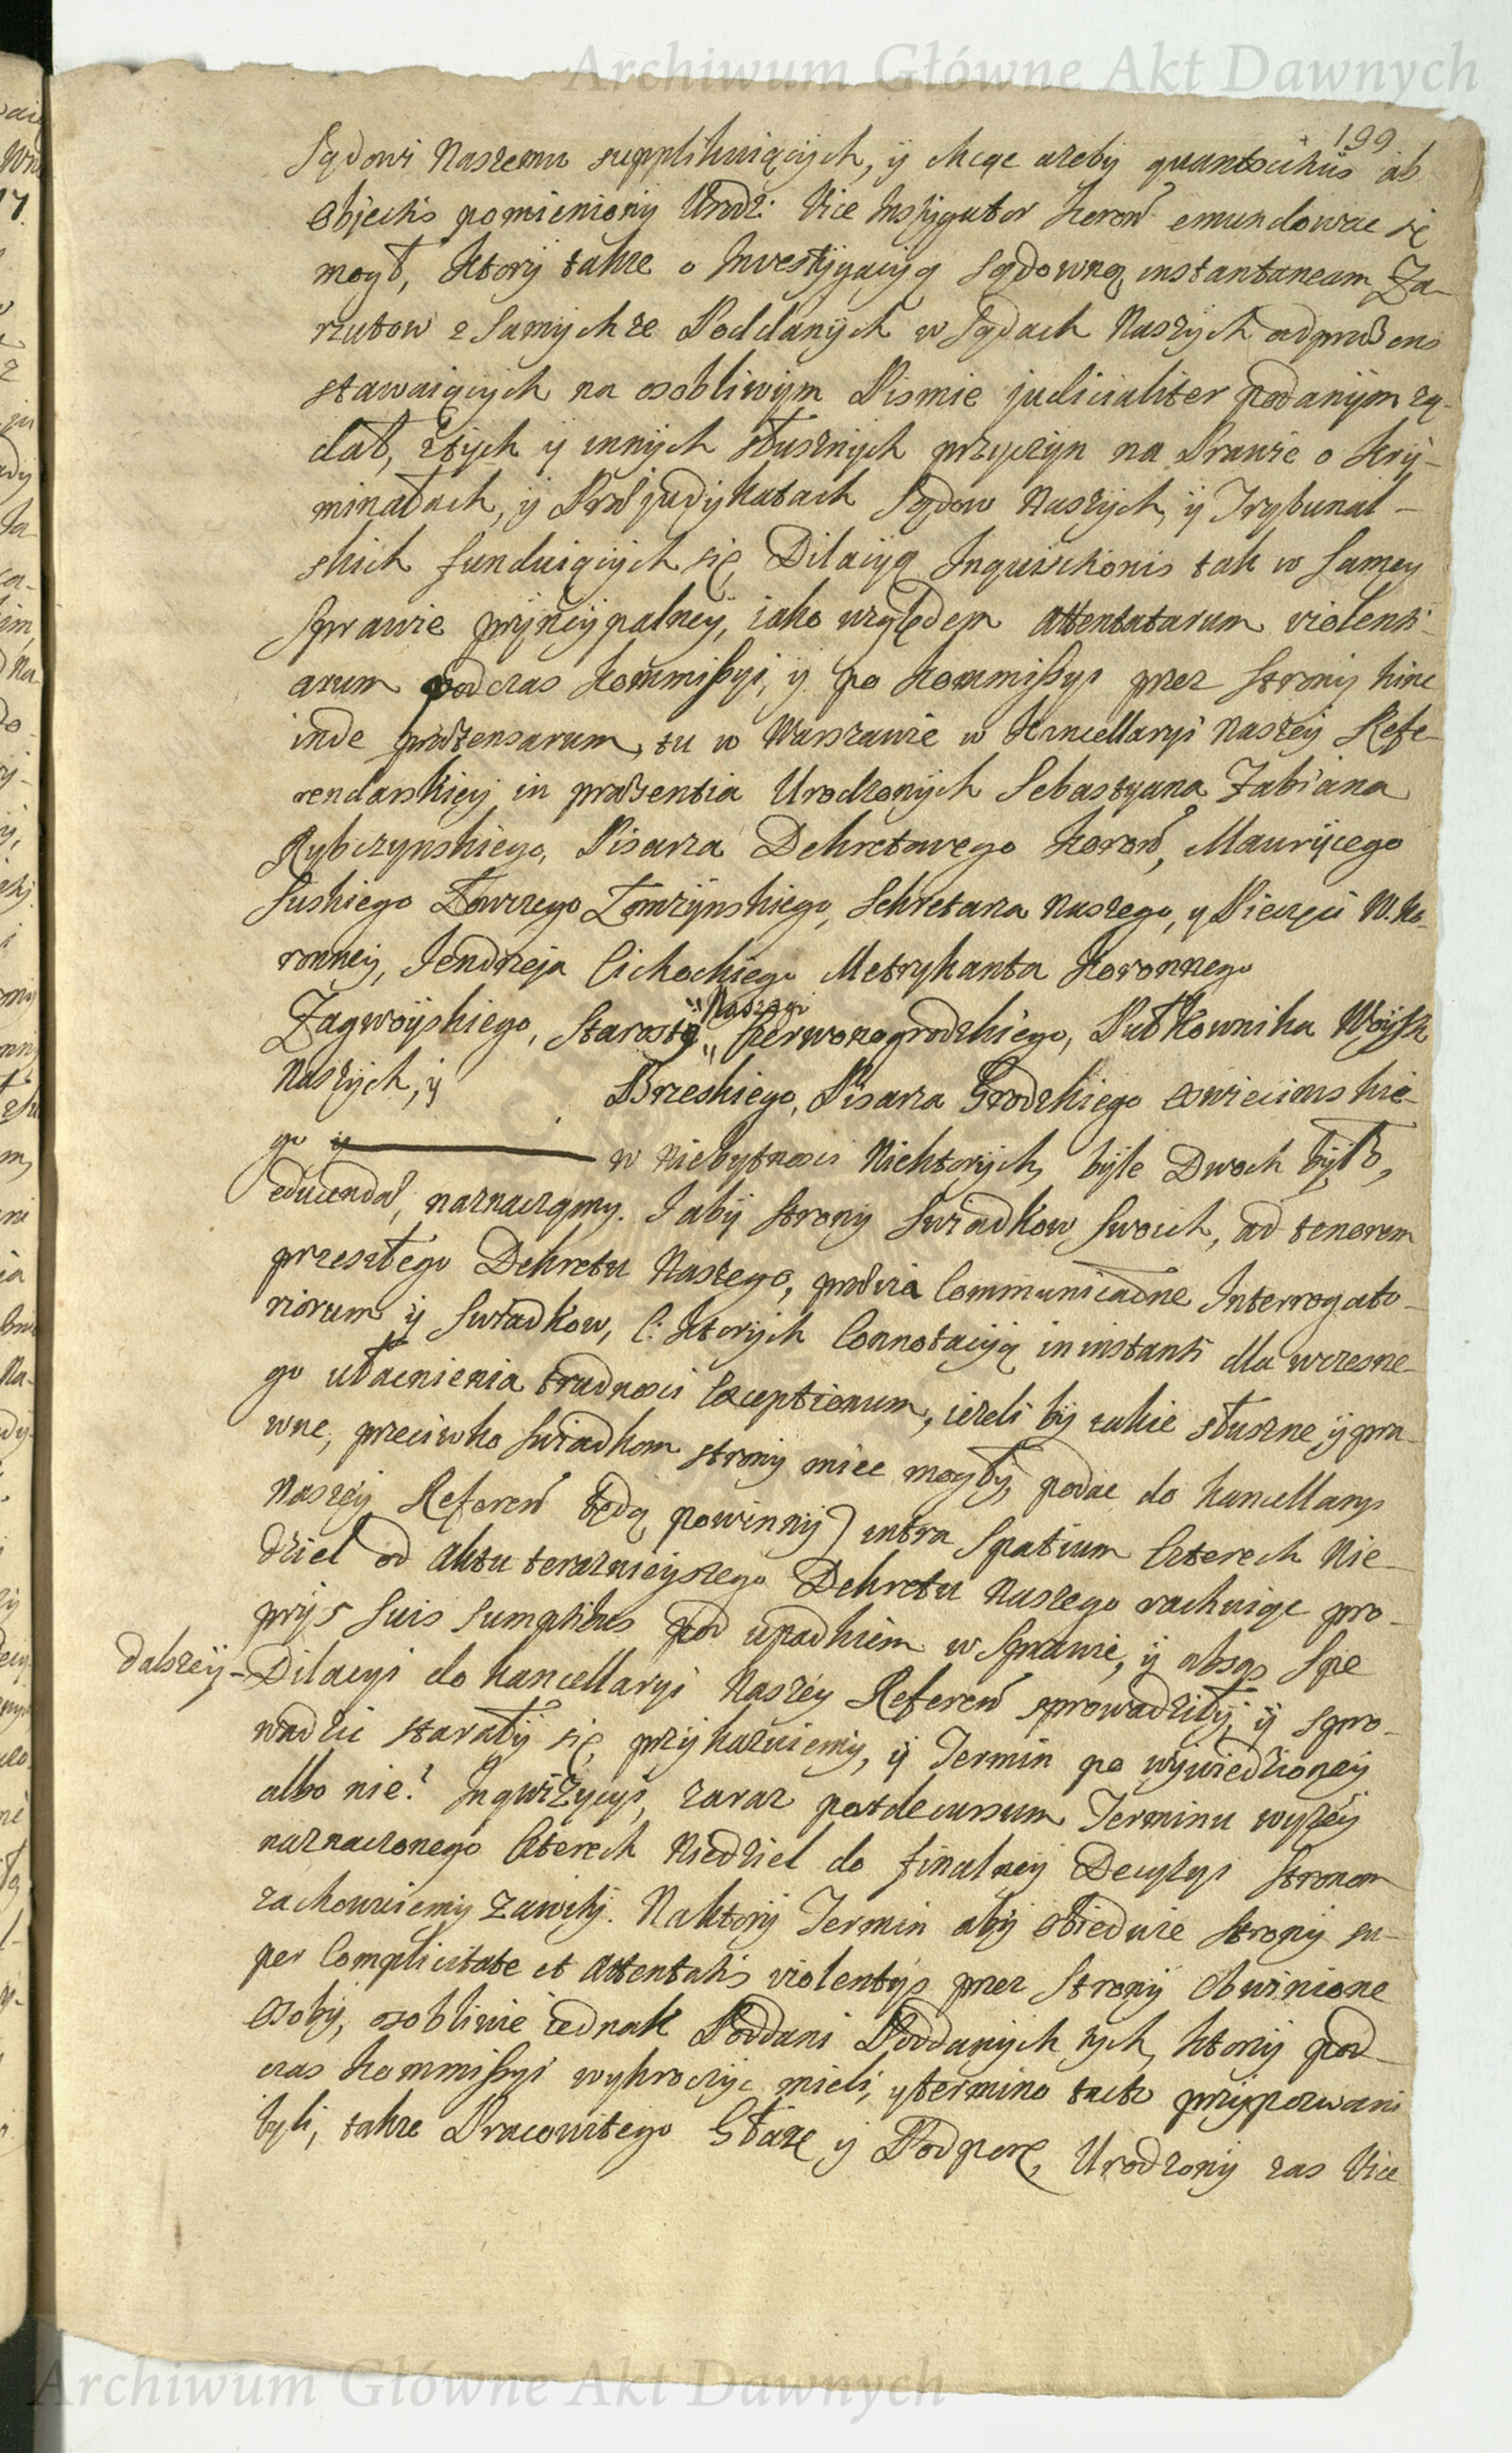 Archiwum Główne Akt Dawnych
199
Sądowi Naszemu supplikuiących, y chcąc ażeby quantocitius ab
objectis pomieniony Urodz: Vice Instygator Koroń emundowac się
mogł, ktory także o Investygacyą Sądową instantaneam Za-
rzutow z Samychże Poddanych w Sądach Naszych ad præsens
stawaiących na osobliwym Pismie judicialiter podanym żą-
dał, z tych y innych słusznych przyczyn na Prawie o Kry-
minałach, y Præjudykatach Sądow Naszych, y Trybunal-
skich funduiących się, Dilacyą Inquisitionis tak w Samey
Sprawie pryncypalney, iako względem Attentatarum violenti-
arum podczas Kommissyi, y po Kommissyi przez Strony hinc
inde prætensarum, tu w Warszawie w Kancellaryi Naszey Refe-
rendarskiey in præsentia Urodzonych Sebastyana Fabiana
Rybczynskiego, Pisarza Dekretowego Koroń, Maurycego
Suskiego Łowczego Łomżynskiego, Sekretarza Naszego, y Pieczęci W. Ko-
ronney, Jendrzeja Cichockiego Metrykanta Koronnego
Zagwoyskiego, Starosty „Naszego„ Czerwonogrodzkiego, Pułkownika Woysk
Naszych, y Brzeskiego, Pisarza Grodzkiego Oswiecimskie-
go y w Niebytnosci Niektorych, byle Dwoch było,
educendā, naznaczamy. I aby Strony Swiadkow Swoich, ad tenorem
przeszłego Dekretu Naszego, prævia Communicaōne Interrogato-
riorum y Swiadkow, (: ktorych Connotacyą in instanti dla wczesne-
go ułacnienia trudnosci Exceptionum, ieżeli by takie słuszne y pra-
wne, przeciwko Swiadkom strony miec mogły, podac do Kancellaryi
Naszey Refereń będą powinny) intra Spatium Czterech Nie-
dziel od Aktu teraznieyszego Dekretu Naszego rachuiąc pro-
prys Suis Sumptibus pod upadkiem w Sprawie, y absq Spe
dalszey - Dilacyi do Kancellaryi Naszey Refereń sprowadziły, y spro-
wadzic starały się, przykazuiemy, y Termin po wywiedzioney
albo nie? Inqwizycyi, zaraz post decursum Terminu wyżey
naznaczonego Czterech Niedziel do finalney Decyzyi Stronom
zachowuiemy zawity. Na ktory Termin aby obiedwie Strony su-
per Complicitate et Attentatis violentys przez Strony Obwinione
Osoby, osobliwie iednak Poddani Poddanych tych, ktory pod-
czas Kommissyi wykroczyc mieli, y termino tacto przypozwani
byli, także Pracowitego Głaże y Podporę, Urodzony zas Vice
Archiwum Główne Akt Dawnych